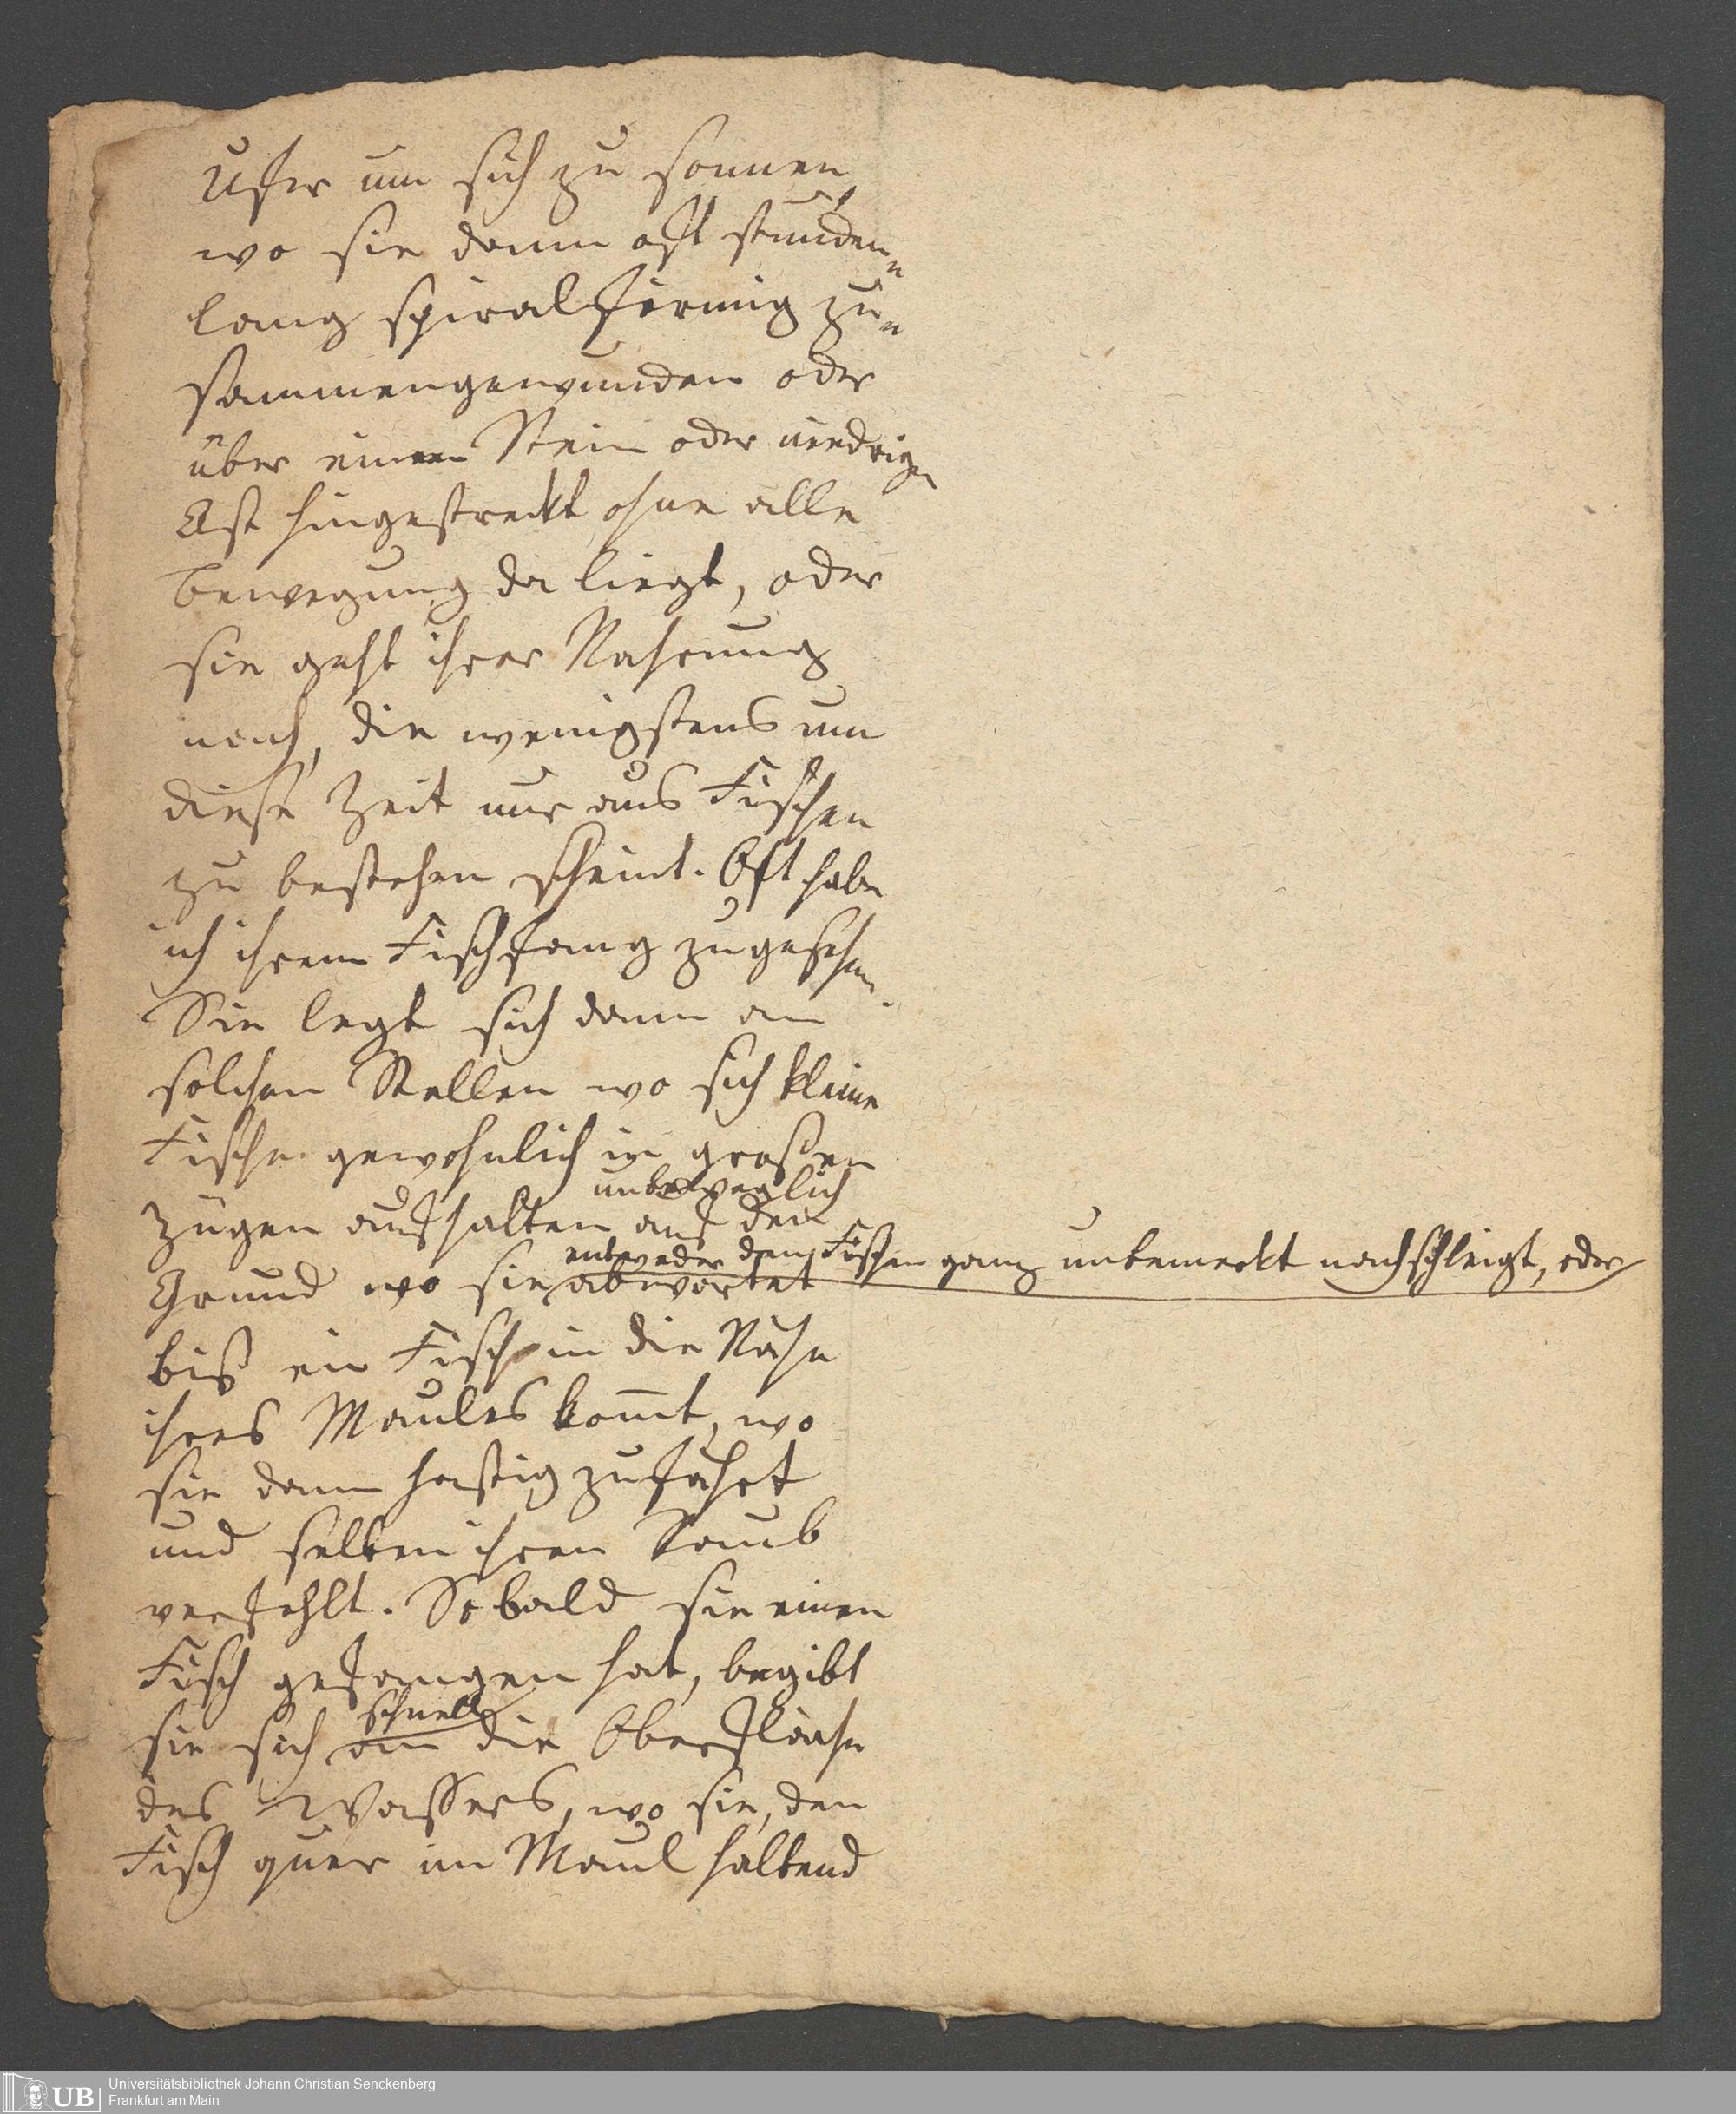 Ufer um sich zu sonnen,
wo sie dann oft stunden„
lang spiralförmig zu„
sammengewunden oder
über einen Stein oder niedrigen
Ast hingestreckt ohne alle
Bewegung da liegt, oder
sie geht ihrer Nahrung
nach, die wenigstens um
diese Zeit nur aus Fischen
zu bestehen scheint. Oft habe
ich ihrem Fischfang zugesehen.
Sie legt sich dann an
solchen Stellen wo sich kleine
Fische gewöhnlich in großen
unbeweglich
Zügen aufhalten auf den
entweder den Fischen ganz unbemerkt nachschleigt, oder
Grund wo sie abwartet
biß ein Fisch in die Nähe
ihres Maules kom̄t, wo
sie dann hastig zufährt
und selten ihren Raub
verfehlt. So bald sie einen
Fisch gefangen hat, begibt
schnell
sie sich an die Oberfläche
des Wassers, wo sie, den
Fisch quer im Maul haltend
Universitätsbibliothek Johann Christian Senckenberg
Frankfurt am Main
UB